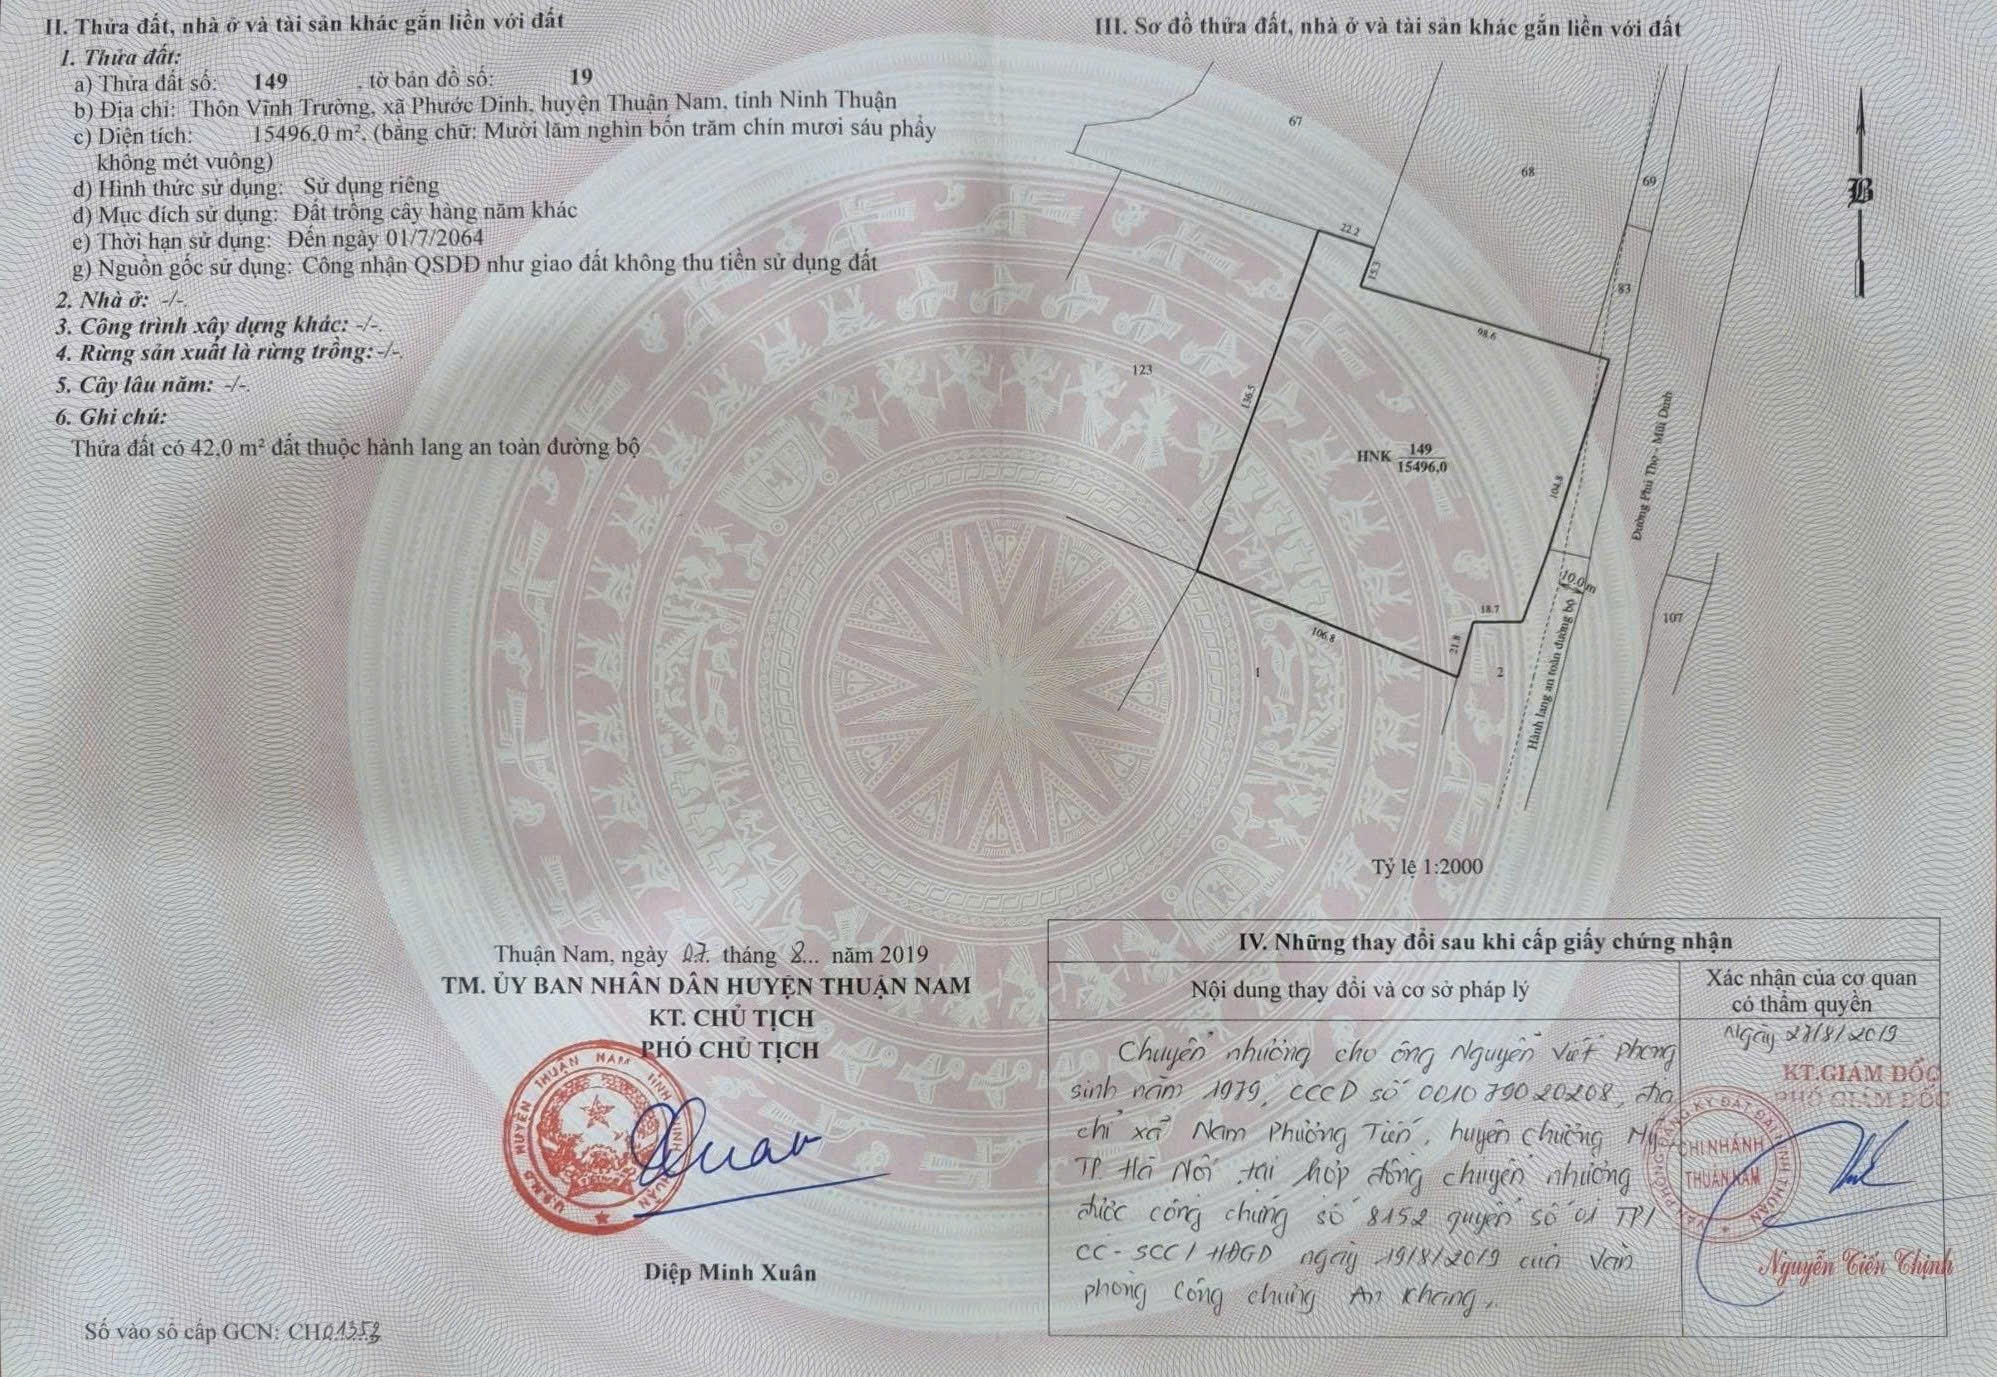 II. Thửa đất, nhà ở và tài sản khác gắn liền với đất
1. Thửa đất:
a) Thửa đất số: 149 , tờ bản đồ số: 19
b) Địa chỉ: Thôn Vĩnh Trường, xã Phước Dinh, huyện Thuận Nam, tỉnh Ninh Thuận
c) Diện tích: 15496,0 m², (bằng chữ: Mười lăm nghìn bốn trăm chín mươi sáu phẩy
không mét vuông)
d) Hình thức sử dụng: Sử dụng riêng
đ) Mục đích sử dụng: Đất trồng cây hàng năm khác
e) Thời hạn sử dụng: Đến ngày 01/7/2064
g) Nguồn gốc sử dụng: Công nhận QSDĐ như giao đất không thu tiền sử dụng đất
2. Nhà ở: -/-.
3. Công trình xây dựng khác: -/-.
4. Rừng sản xuất là rừng trồng: -/-.
5. Cây lâu năm: -/-.
6. Ghi chú:
Thửa đất có 42,0 m² đất thuộc hành lang an toàn đường bộ
Thuận Nam, ngày 07 tháng 8... năm 2019
TM. ỦY BAN NHÂN DÂN HUYỆN THUẬN NAM
KT. CHỦ TỊCH
PHÓ CHỦ TỊCH
Diệp Minh Xuân
Số vào sổ cấp GCN: CH01358
III. Sơ đồ thửa đất, nhà ở và tài sản khác gắn liền với đất
67
68
69
B
22.2
15.3
83
98.6
123
136.5
HNK 149
15496,0
Đường Phú Thọ - Mũi Dinh
104.8
10.0 m
18.7
107
106.8
21.8
1
2
Hành lang an toàn đường bộ
Tỷ lệ 1:2000
IV. Những thay đổi sau khi cấp giấy chứng nhận
Nội dung thay đổi và cơ sở pháp lý
Xác nhận của cơ quan
có thẩm quyền
Chuyển nhượng cho ông Nguyễn Viết Phong
sinh năm 1979, CCCD số 001079020208, địa
chỉ xã Nam Phương Tiến, huyện Chương Mỹ,
TP. Hà Nội, tại hợp đồng chuyển nhượng
được công chứng số 8152 quyển số 01 TP/
CC-SCC/HĐGD ngày 19/8/2019 của Văn
phòng Công chứng An Khang.
Ngày 27/8/2019
KT.GIÁM ĐỐC
PHÓ GIÁM ĐỐC
CHI NHÁNH
THUẬN NAM
Nguyễn Tiến Thịnh